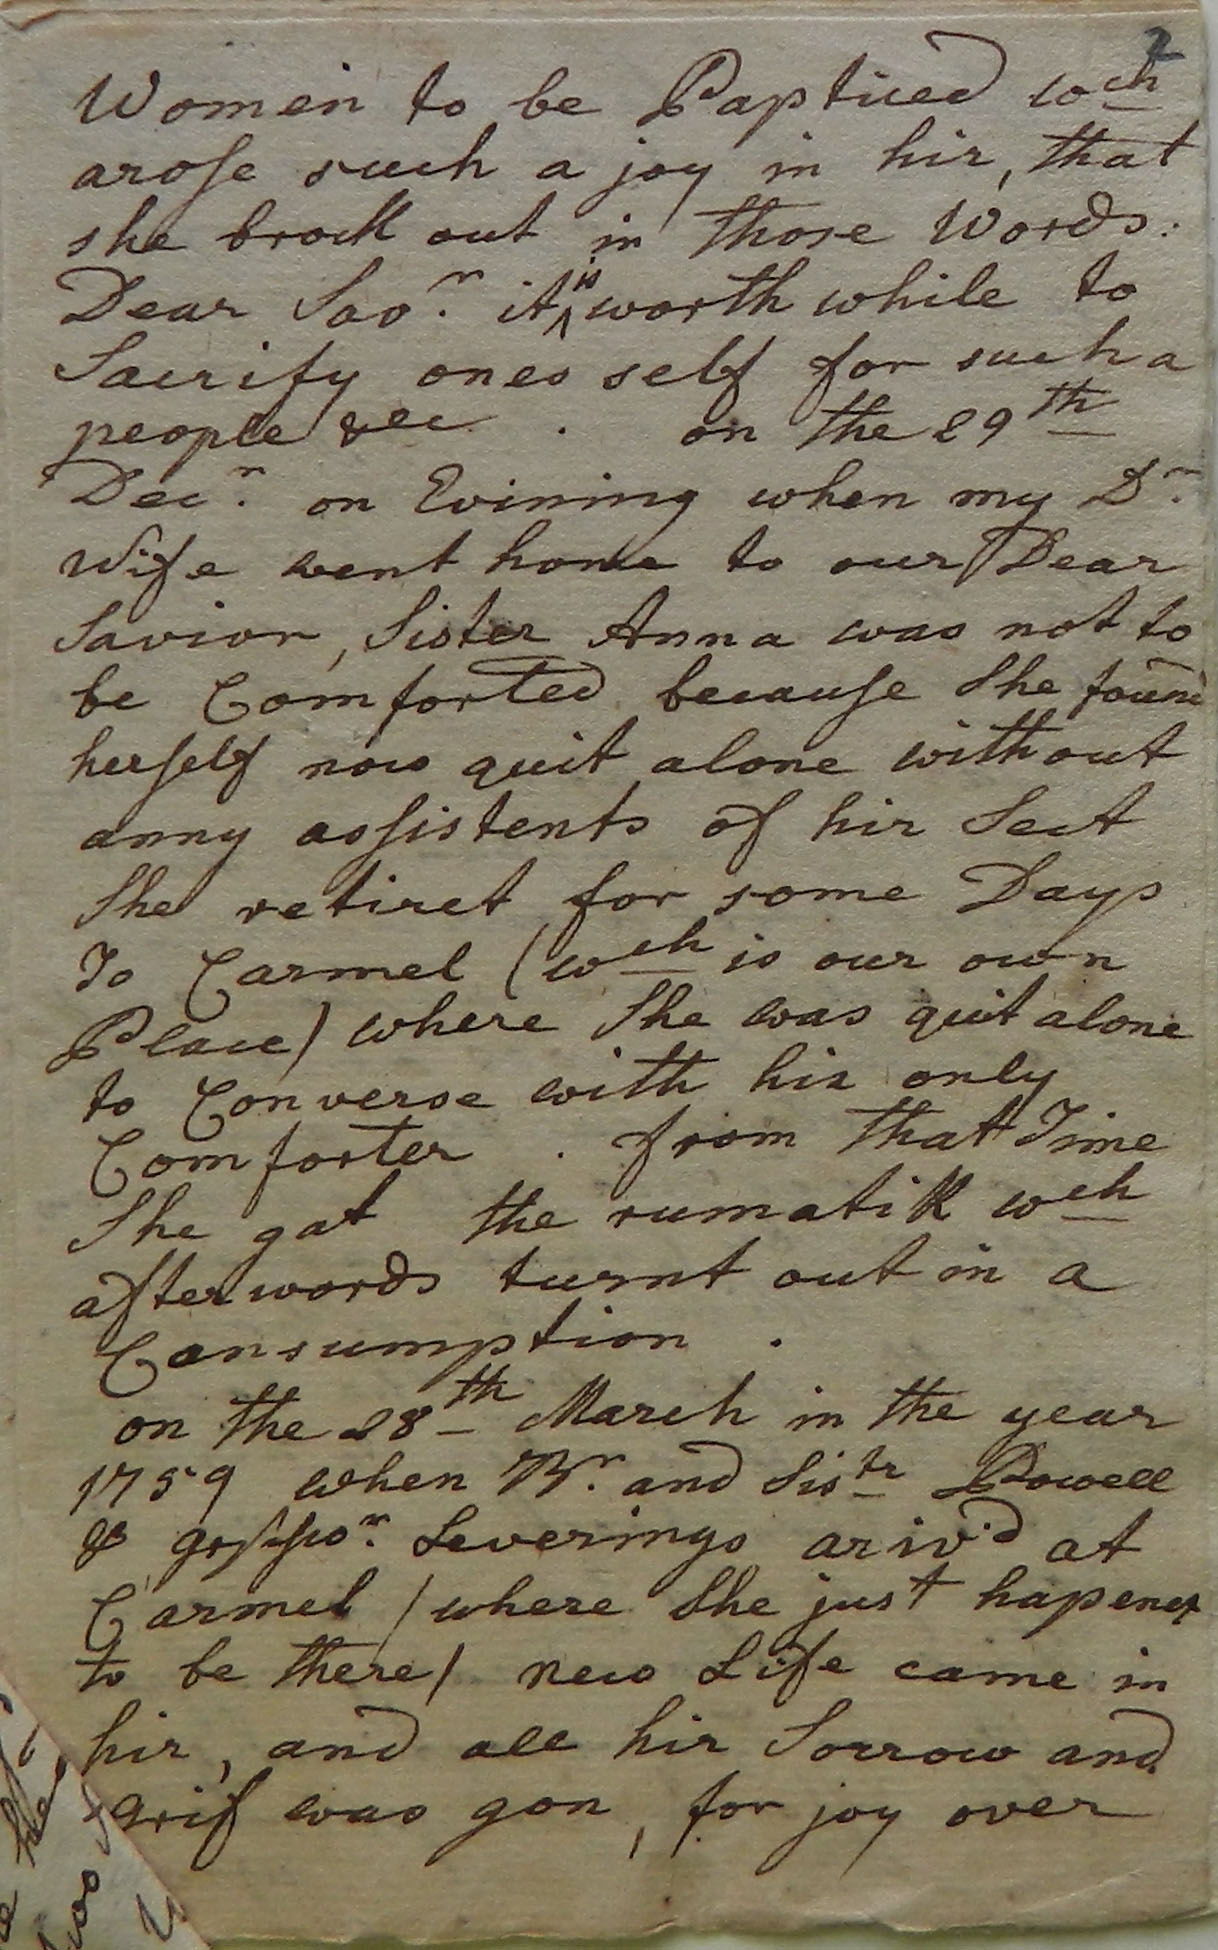 2
Women to be Baptised wch
arose such a joy in hir, that
she brock out in those Words:
Dear Savr. it is worth while to
Sacrify ones self for such a
people &cc. on the 29th
Decr. on Evining when my Dr.
Wife went home to our Dear
Savior, Sister Anna was not to
be Comforted because She found
herself now quit alone without
anny assistents of hir Sect
She retiret for some Days
To Carmel (wch is our own
Place) where She was quit alone
to Converse with hir only
Comforter. from that Time
She gat the rumatik wch
afterwords turnt out in a
Consumption.
on the 28th March in the year
1759 when Br. and Sistr Powell
& Leverings ariv'd at
Carmel (where She just hapenet
to be there) new Life came in
hir, and all hir Sorrow and
grif was gon, for joy over